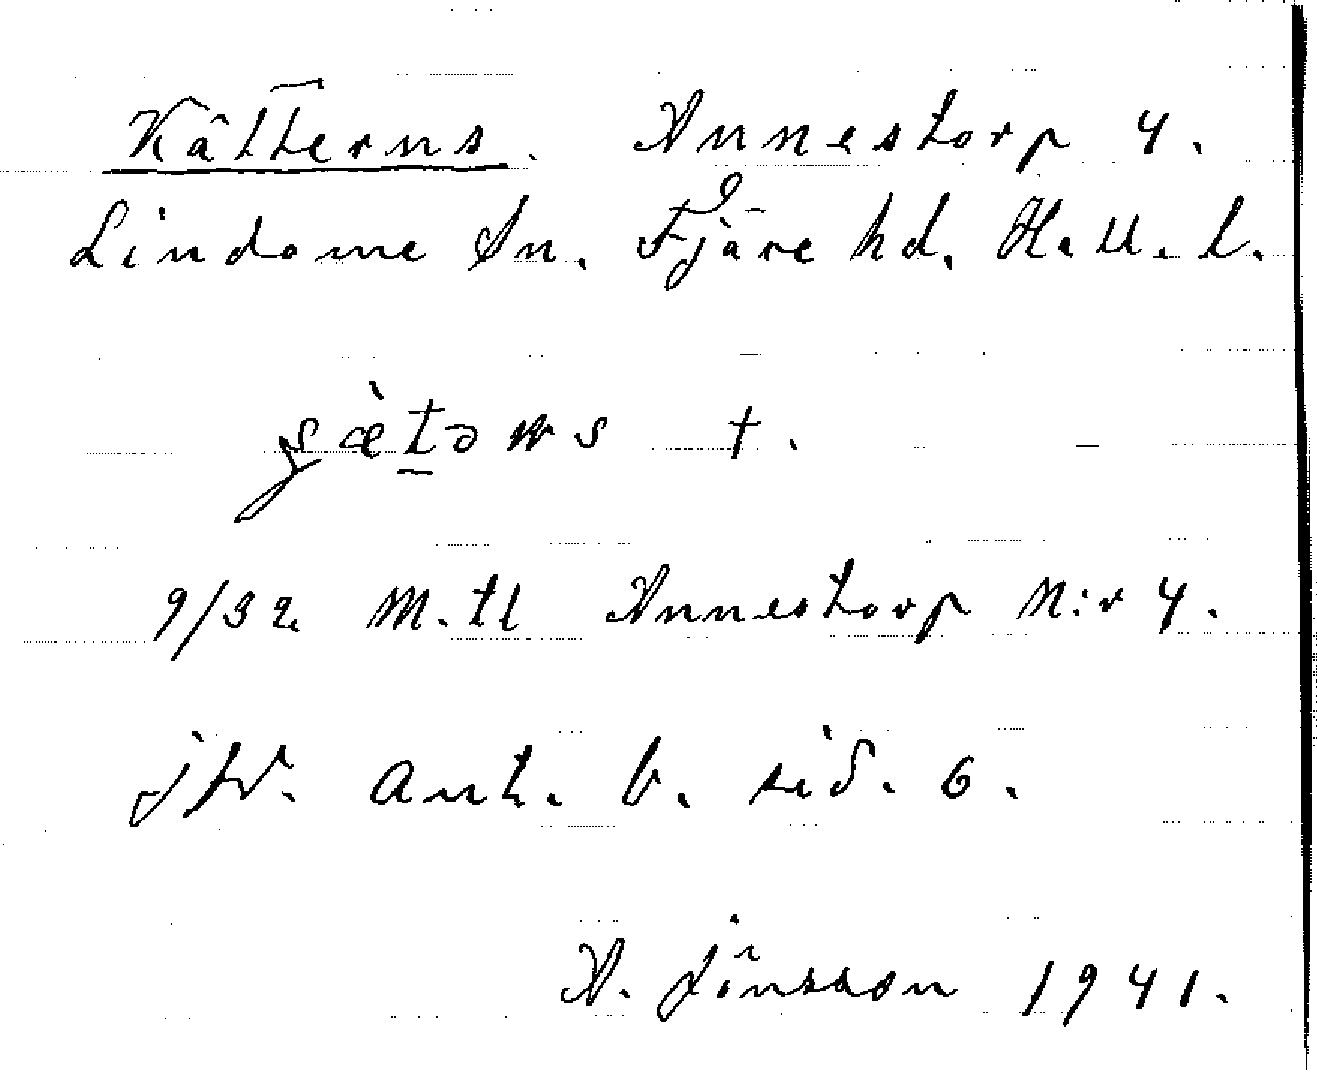 Kätterns. Annestorp 4.
Lindome Sn. Fjäre hd. Hall. L.
t.
9/32 M.tl Annestorp N:r 4.
jfr. Ant. b. sid. 6.
A. Jönsson 1941.